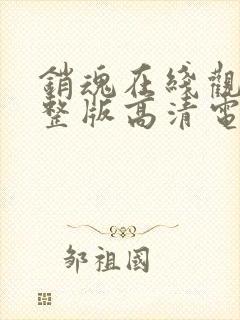 銷魂在綫觀
整版高清電
邹祖國